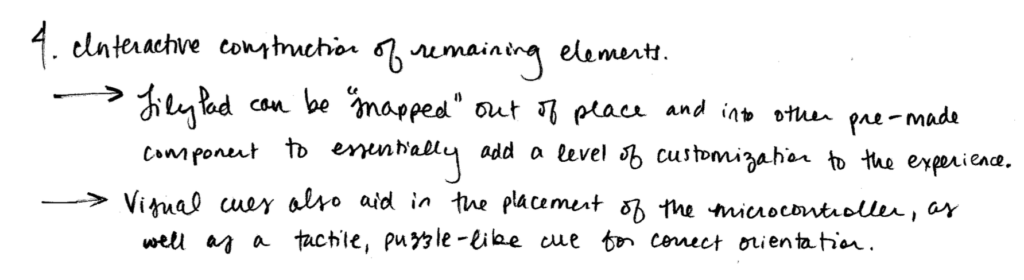 4. Interactive construction of remaining elements.
→ LilyPad can be "snapped" out of place and into other pre-made
component to essentially add a level of customization to the experience.
→ Visual cues also aid in the placement of the microcontroller, as
well as a tactile, puzzle-like cue for correct orientation.